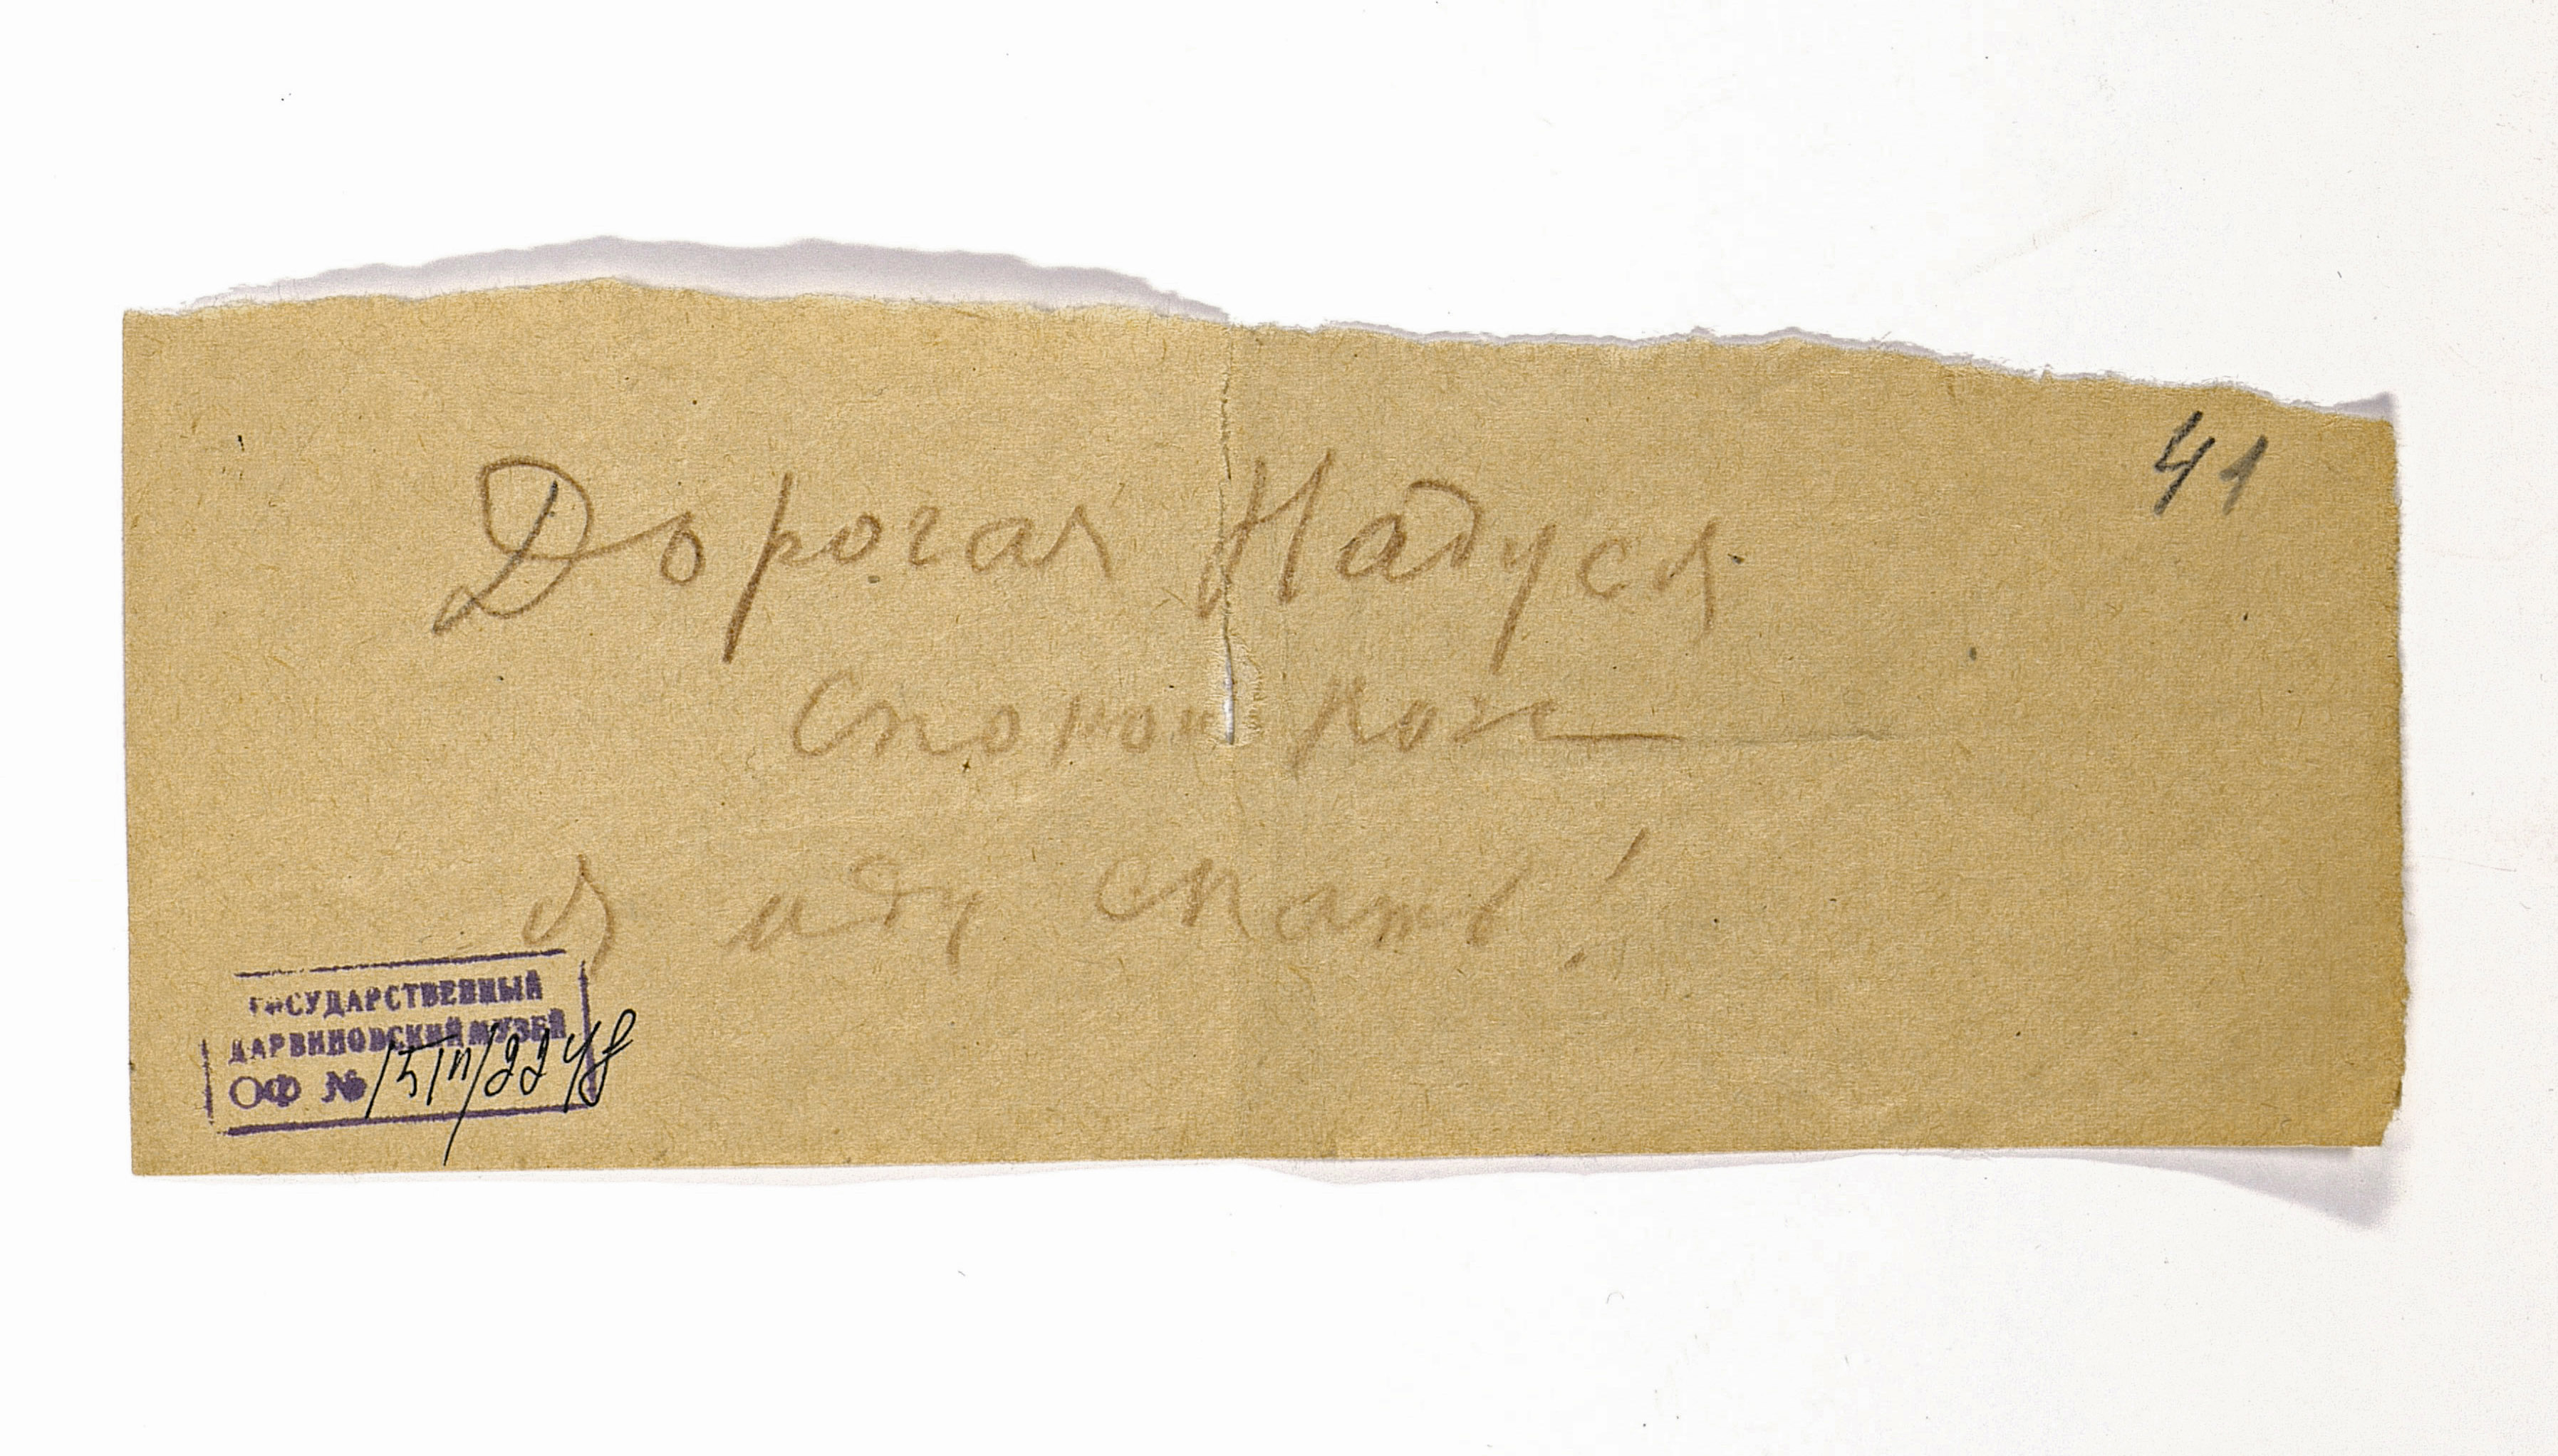 41
Дорогая Надуся
Спокой ноч
Я иду спать!
ГОСУДАРСТВЕННЫЙ
ДАРВИНОВСКИЙ МУЗЕЙ
ОФ №